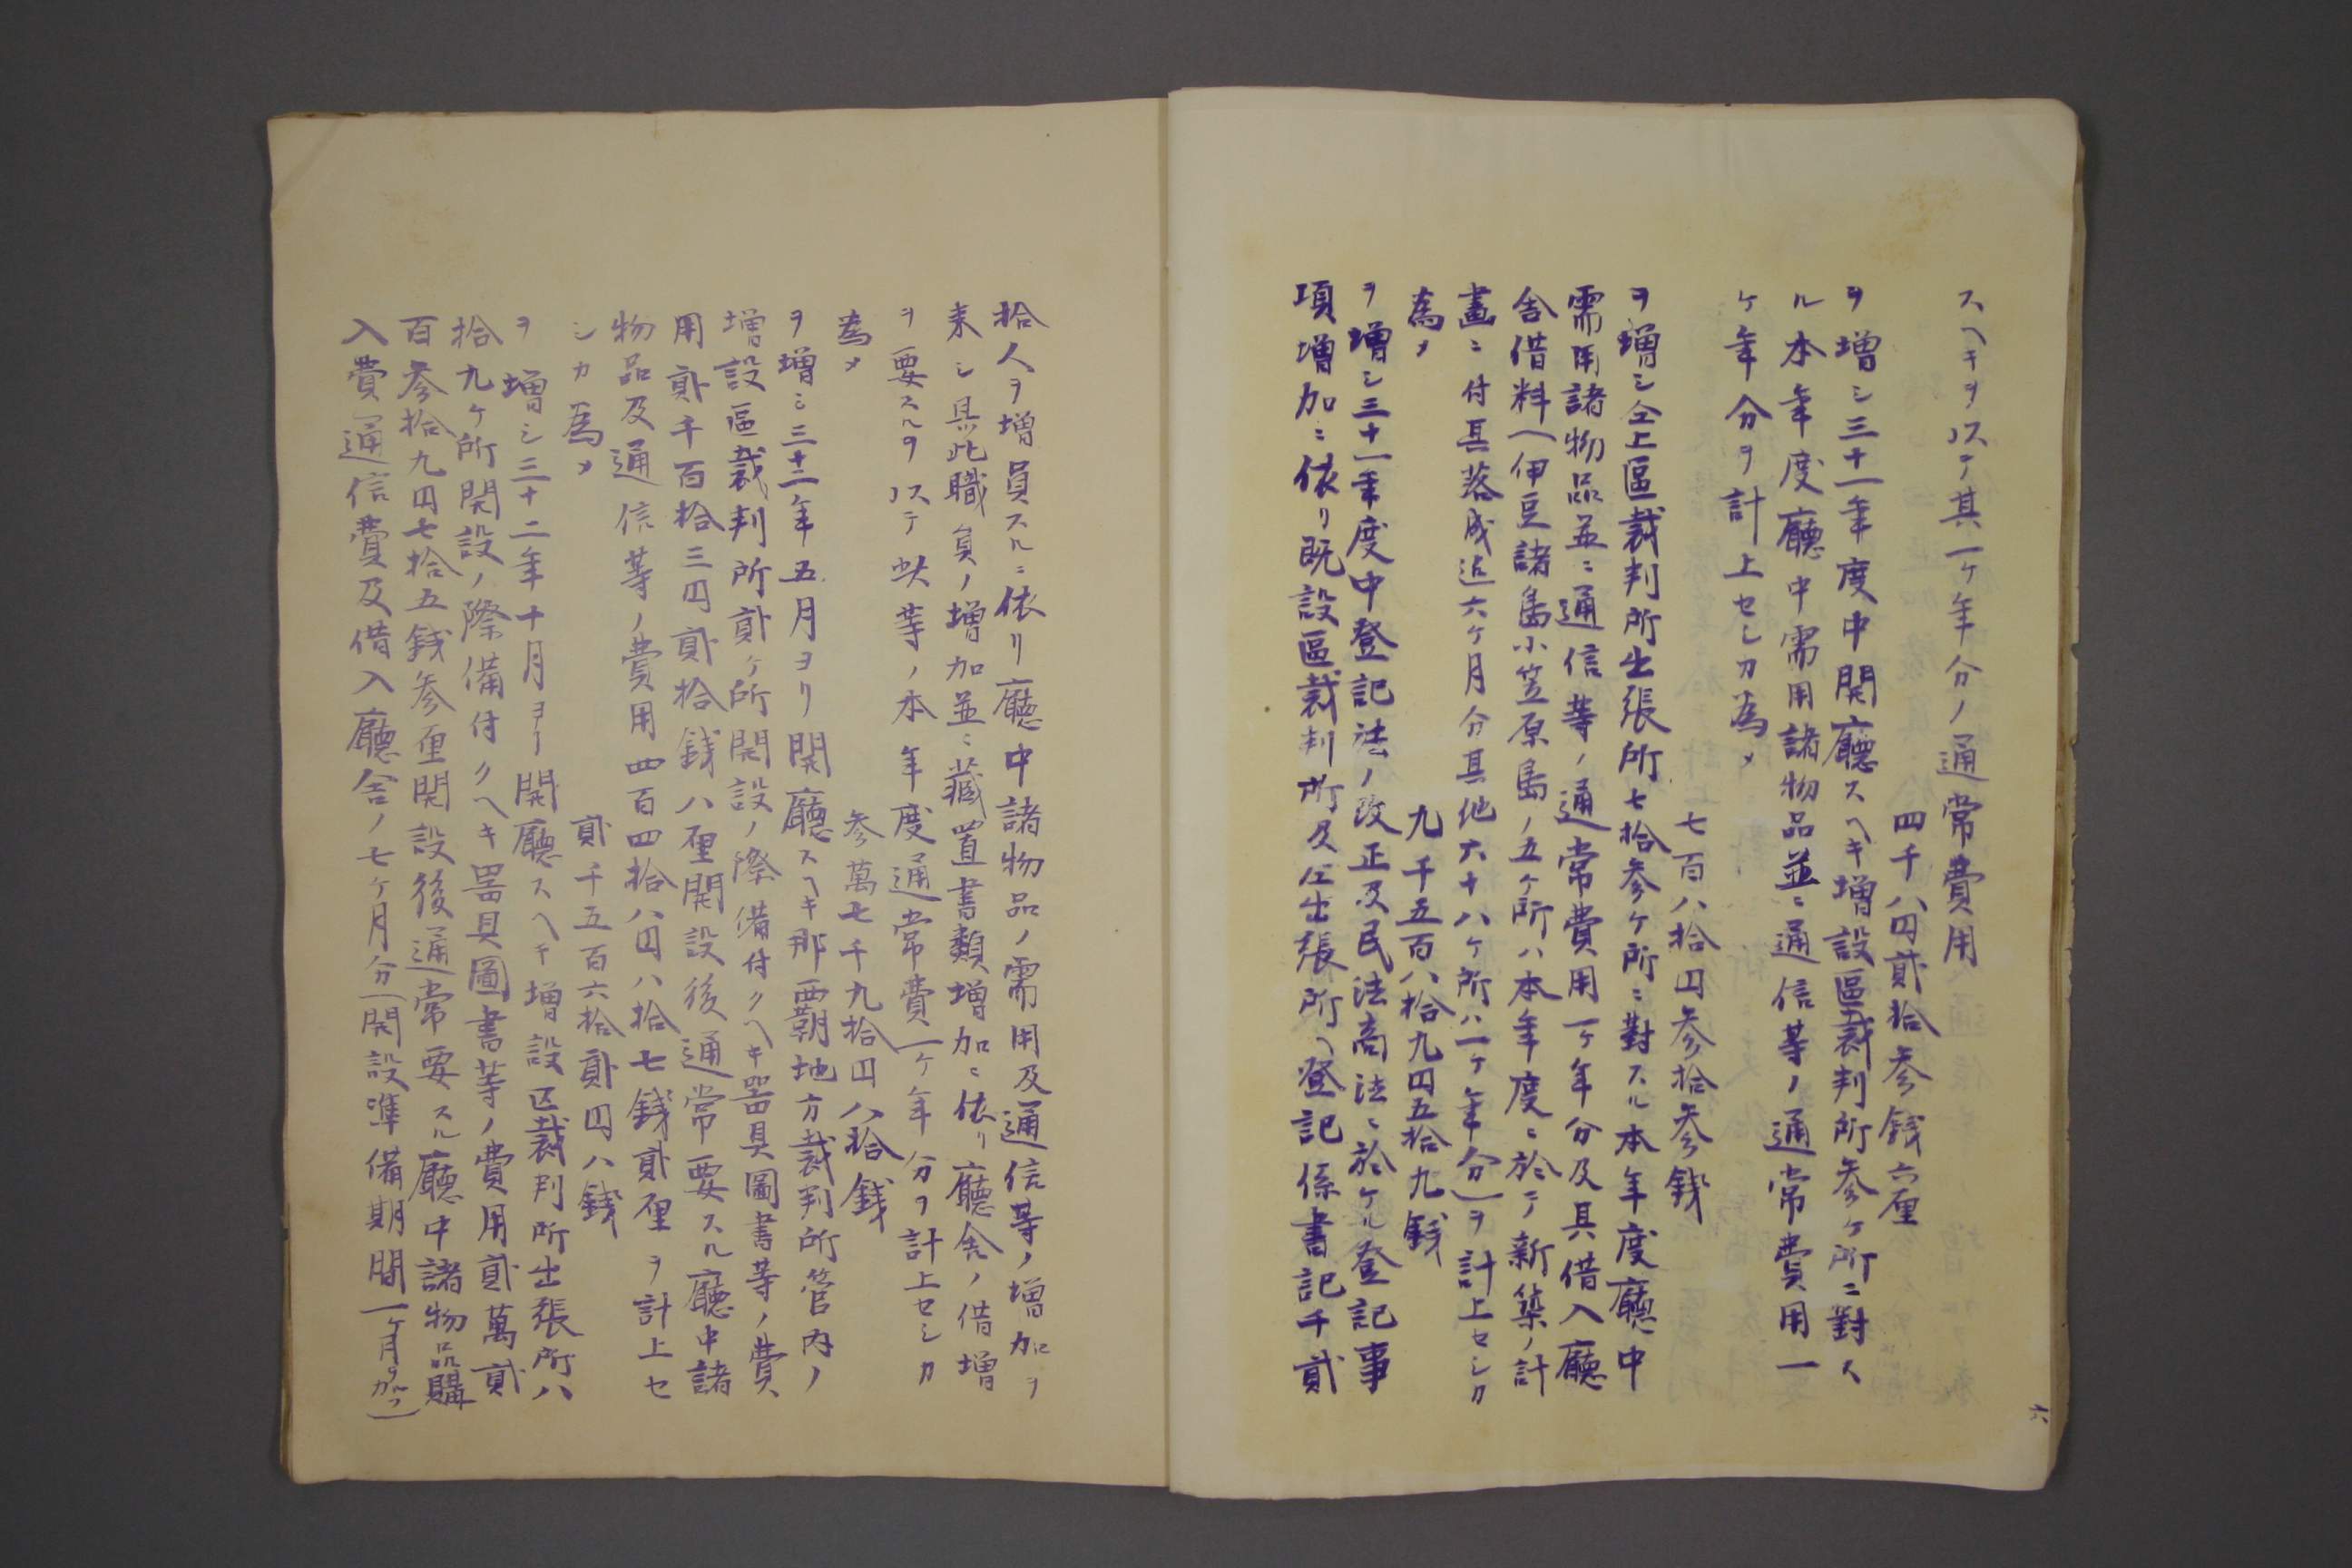 スヘキヲ以テ其一ケ年分ノ通常費用
四千八円貳拾参銭六厘
ヲ増シ三十一年度中開廳スヘキ増設區裁判所参ケ所ニ對ス
ル本年度廳中需用諸物品並ニ通信等ノ通常費用一
ケ年分ヲ計上セシカ為メ
七百八拾円参拾参銭
ヲ増シ仝上區裁判所出張所七拾参ケ所ニ對スル本年度廳中
需用諸物品並ニ通信等ノ通常費用一ケ年分及具借入廳
舎借料(伊豆諸島小笠原島ノ五ケ所ハ本年度ニ於テ新築ノ計
畫ニ付其落成迄六ケ月分其他六十八ケ所ハ一ケ年分)ヲ計上セシカ
為メ
九千五百八拾九円五拾九銭
ヲ増シ三十一年度中登記法ノ改正及民法商法ニ於ケル登記事
項増加ニ依リ既設區裁判所及仝出張所ヘ登記係書記千貳
六
拾人ヲ増員スルニ依リ廳中諸物品ノ需用及通信等ノ増加ヲ
来シ具此職員ノ増加並ニ藏置書類増加ニ依リ廳舎ノ借増
ヲ要スルヲ以テ此等ノ本年度通常費一ケ年分ヲ計上セシカ
為メ
参萬七千九拾円八拾銭
ヲ増シ三十二年五月ヨリ開廳スヘキ那覇地方裁判所管内ノ
増設區裁判所貳ケ所開設ノ際備付クヘキ器具圖書等ノ費
用貳千百拾三円貳拾銭八厘開設後通常要スル廳中諸
物品及通信等ノ費用四百四拾八円八拾七銭貳厘ヲ計上セ
シカ為メ
貳千五百六拾貳円八銭
ヲ増シ三十二年十月ヨリ開廳スヘキ増設区裁判所出張所八
拾九ケ所開設ノ際備付クヘキ器具圖書等ノ費用貳萬貳
百参拾九円七拾五銭参厘開設後通常要スル廳中諸物品購
入費通信費及借入廳舎ノ七ケ月分(開設準備期間一ケ月ヲ加フ)